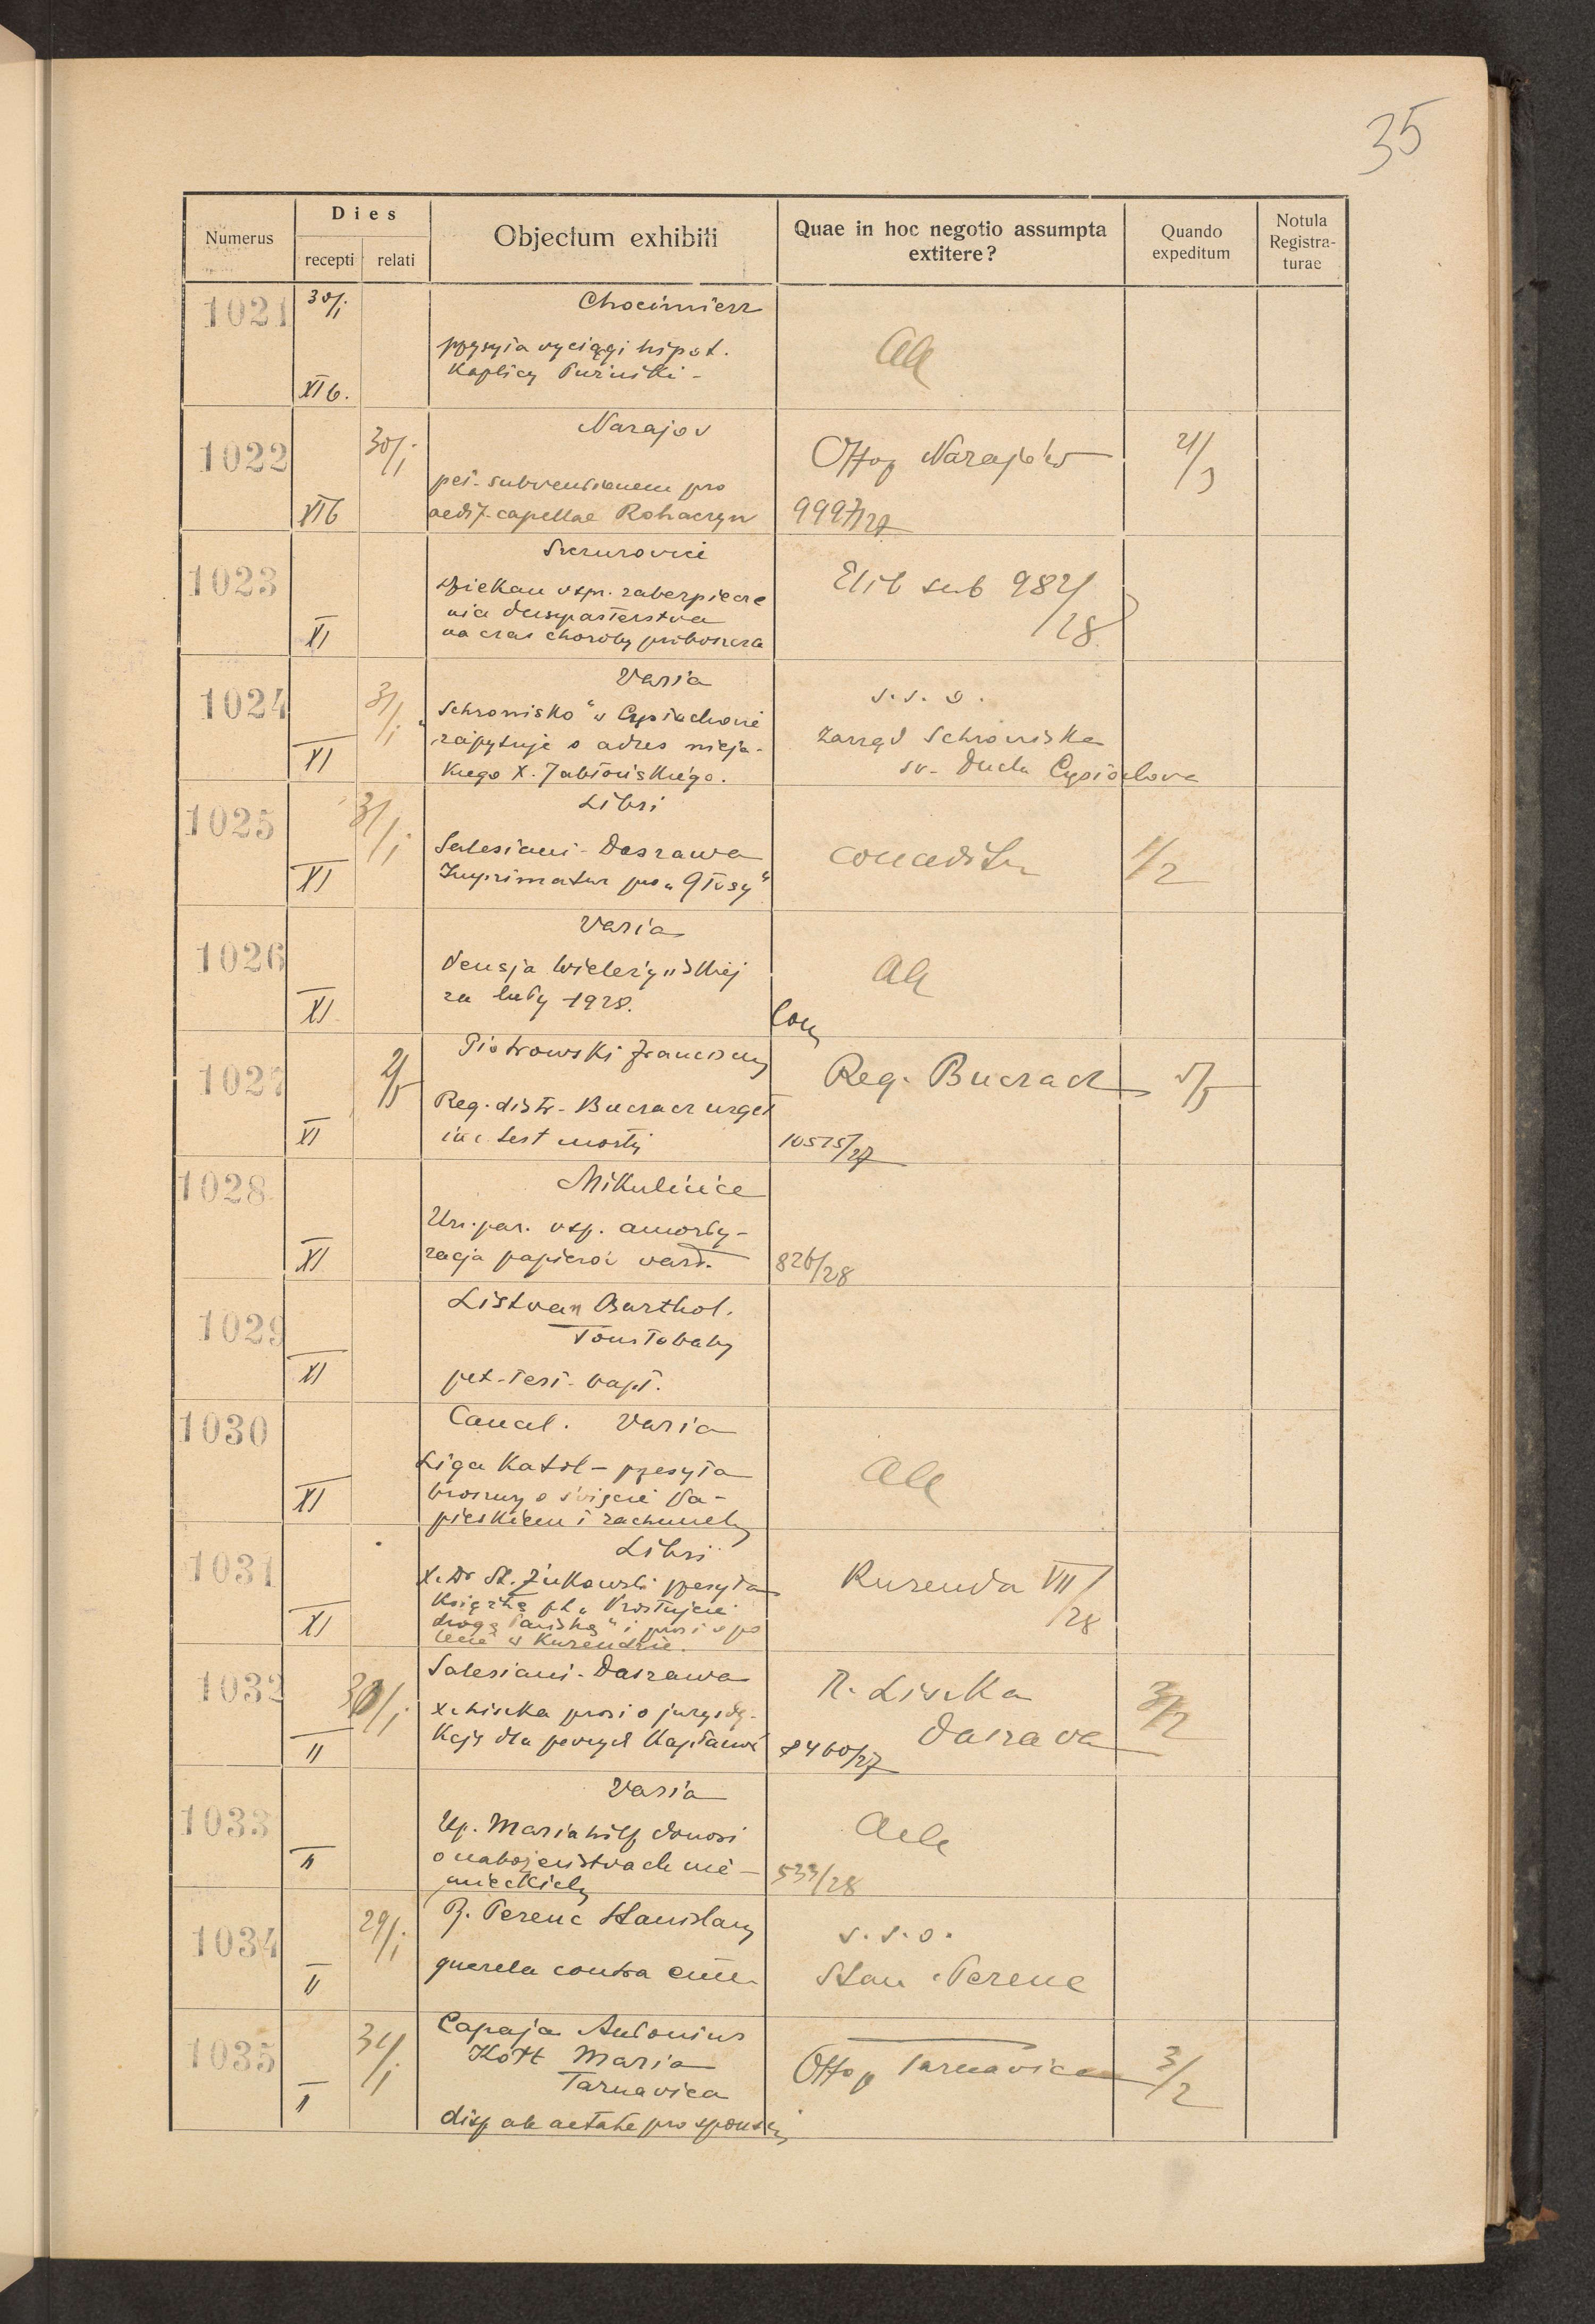 35
Numerus
Dies
recepti
relati
Objectum exhibiti
Quae in hoc negotio assumpta
extitere?
Quando
expeditum
Notula
Registra-
turae
1021
30/I
XI b.
Chocimierz
przysyła wyciągi hipot.
Kaplicy Puźniki -
1022
30/I
XI b
Narajov
pet. subventionem pro
aedif. capellae Rohaczyn
Offop Narajów
9997/27
1023
XI
Szczurovice
dziekan vspr. zabezpiecze
nia duszpasterstva
na czas choroby proboszcza
Elib sub 982/
/28
1024
31/I
XI
Varia
"Schronisko" w
zapytuje o adres nieja-
kiego X. Jabłońskiego.
s. s. o.
Zarząd Schroniska
sv. Ducha
1025
31/I
XI
Libri
Salesiani - Daszawa
Imprimatur pro "Głosy"
conceditur
1/2
1026
XI
Varia
Pensja
za luty 1928.
1027
2/5
XI
Piotrowski
Reg. distr. Buczacz urget
test mortis
Reg. Buczacz
10575/27
5/5
1028
XI
Mikulince
Urz. par. vsp. amorty-
zacja papierów vart.
826/28
1029
XI
Listvan Barthol.
Toustobaby
pet. test. bapt.
1030
XI
Cancel. Varia
Liga Katol - przesyła
o święcie Pa-
pieskiem i
1031
XI
Libri
X. Dr St. Żukowski przesyła
książkę pt. "Prostujcie
drogę Pańską" i prosi o po
lecie w Kurendzie.
Kurenda VII/
/28
1032
30/I
II
Salesiani - Daszawa
X. Liszka prosi o jurysdy-
kcję dla pevnych kapłanów
R. Liszka
Daszava
8460/27
3/2
1033
II
Varia
Mariahilf donosi
o nabożeństvach nie-
mieckich
533/28
1034
29/I
II
P. Perenc Stanislaus
querela contra eum
s. s. o.
Stan. Perenc
1035
31/I
II
Capaja Antonius
Kött Maria
Tarnavica
disp ab aetate pro sponsis
Offop Tarnavica
3/2